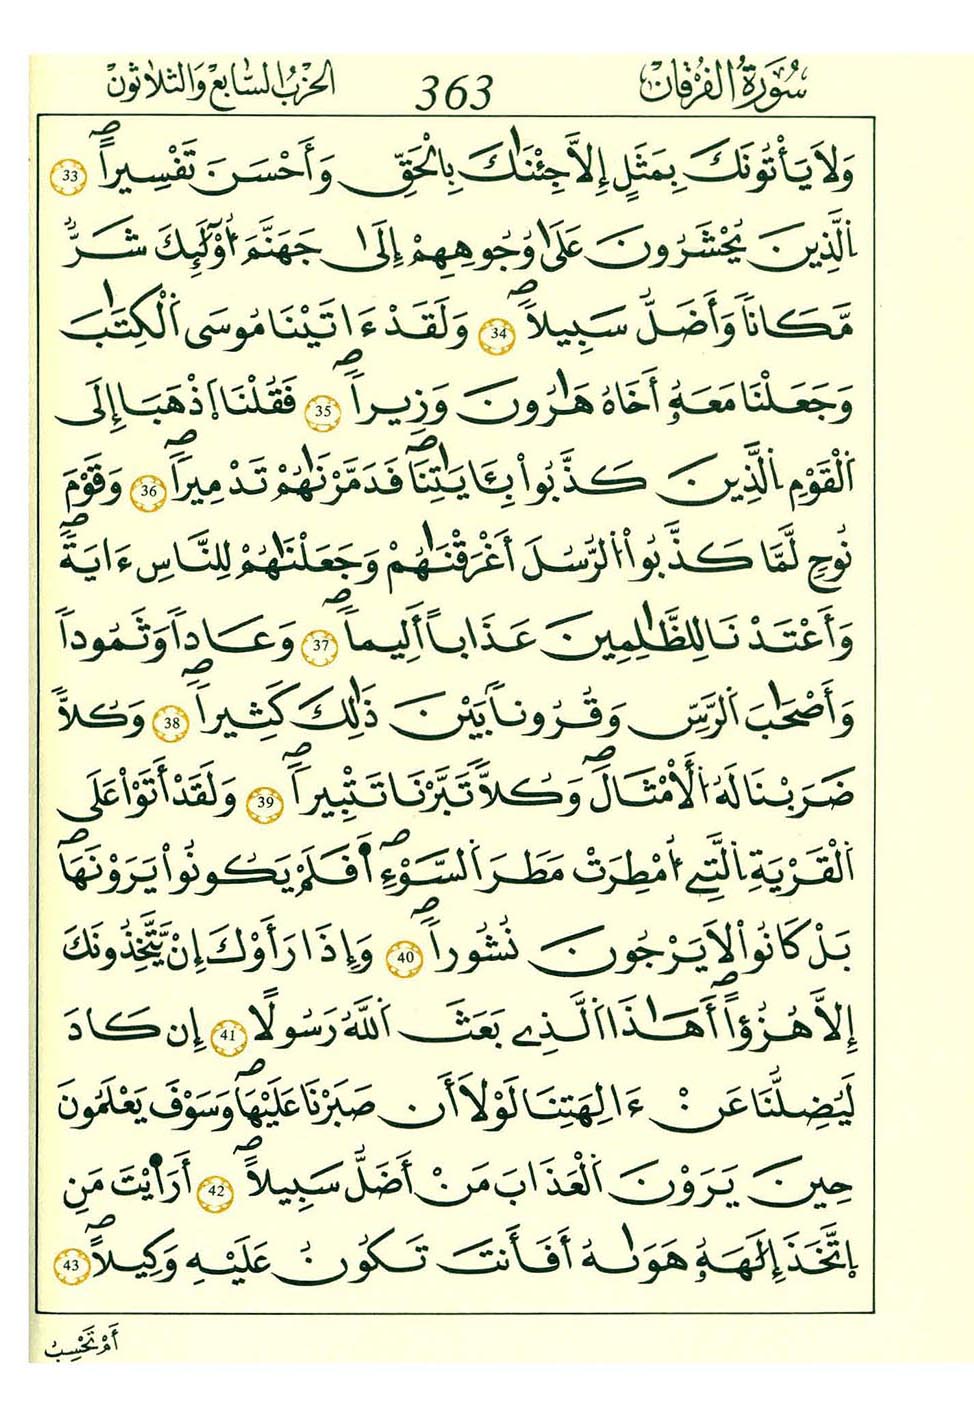 سُورَةُ الفُرْقَان 363 الحِزْبُ السَّابِعُ وَالثَّلاَثُون
وَلَا يَأْتُونَكَ بِمَثَلٍ إِلَّا جِئْنَٰكَ بِالْحَقِّ وَأَحْسَنَ تَفْسِيراًۖ 33
اَ۬لذِينَ يُحْشَرُونَ عَلَىٰ وُجُوهِهِمْ إِلَىٰ جَهَنَّمَ أُوْلَٰٓئِكَ شَرّٞ
مَّكَاناٗ وَأَضَلُّ سَبِيلاٗۖ 34 وَلَقَدْ ءَاتَيْنَا مُوسَى اَ۬لْكِتَٰبَ
وَجَعَلْنَا مَعَهُۥٓ أَخَاهُ هَٰرُونَ وَزِيراٗۖ 35 فَقُلْنَا اَ۪ذْهَبَا إِلَى
اَ۬لْقَوْمِ اِ۬لذِينَ كَذَّبُواْ بِـَٔايَٰتِنَاۖ فَدَمَّرْنَٰهُمْ تَدْمِيراٗۖ 36 وَقَوْمَ
نُوحٖ لَّمَّا كَذَّبُواْ اُ۬لرُّسُلَ أَغْرَقْنَٰهُمْ وَجَعَلْنَٰهُمْ لِلنَّاسِ ءَايَةٗۖ
وَأَعْتَدْنَا لِلظَّٰلِمِينَ عَذَاباً أَلِيماٗۖ 37 وَعَاداٗ وَثَمُوداٗ
وَأَصْحَٰبَ اَ۬لرَّسِّ وَقُرُوناَۢ بَيْنَ ذَٰلِكَ كَثِيراٗۖ 38 وَكُلّاٗ
ضَرَبْنَا لَهُ اُ۬لْأَمْثَٰلَۖ وَكُلّاٗ تَبَّرْنَا تَتْبِيراٗۖ 39 وَلَقَدْ أَتَوْاْ عَلَى
اَ۬لْقَرْيَةِ اِ۬لتِےٓ أُمْطِرَتْ مَطَرَ اَ۬لسَّوْءِۖ اَفَلَمْ يَكُونُواْ يَرَوْنَهَاۖ
بَلْ كَانُواْ لَا يَرْجُونَ نُشُوراٗۖ 40 وَإِذَا رَأَوْكَ إِنْ يَّتَّخِذُونَكَ
إِلَّا هُزُؤاًۖ أَهَٰذَا اَ۬لذِے بَعَثَ اَ۬للَّهُ رَسُولًا 41 إِن كَادَ
لَيُضِلُّنَا عَنْ ءَالِهَتِنَا لَوْلَا أَن صَبَرْنَا عَلَيْهَاۖ وَسَوْفَ يَعْلَمُونَ
حِينَ يَرَوْنَ اَ۬لْعَذَابَ مَنْ أَضَلُّ سَبِيلاًۖ 42 أَرَٰٓيْتَ مَنِ
اِ۪تَّخَذَ إِلَٰهَهُۥ هَوَىٰهُ أَفَأَنتَ تَكُونُ عَلَيْهِ وَكِيلاًۖ 43
أَمْ تَحْسِبُ